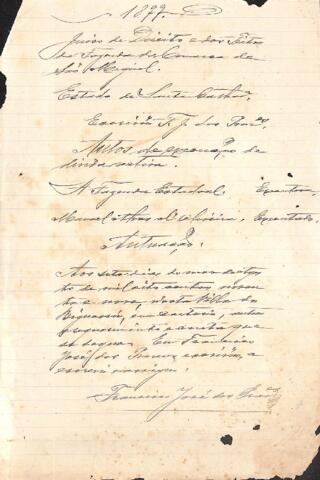 1899.
Juizo de Direito e dos Feitos
da Fazenda da Comarca de
São Miguel.
Estado de Santa Catharina
Escrivão F. J. dos
Autos de execução de
divida activa.
A Fazenda Estadoal. Exequente
Manoel Alves de Oliveira, Executado.
Autuação.
Aos sete dias do mez de Agos
to de mil oito centos noven
ta e nove, nesta Villa de
Biguassú, em cartorio, autuo
o requerimento adiante que
se segue. Eu Francisco
José dos escrivão, o
escrevi
Francisco José dos